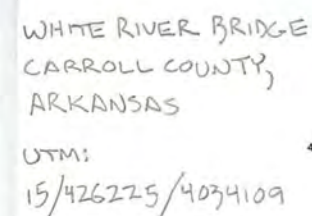 WHITE RIVER BRIDGE
CARROLL COUNTY,
ARKANSAS
UTM:
15/426225/4034109